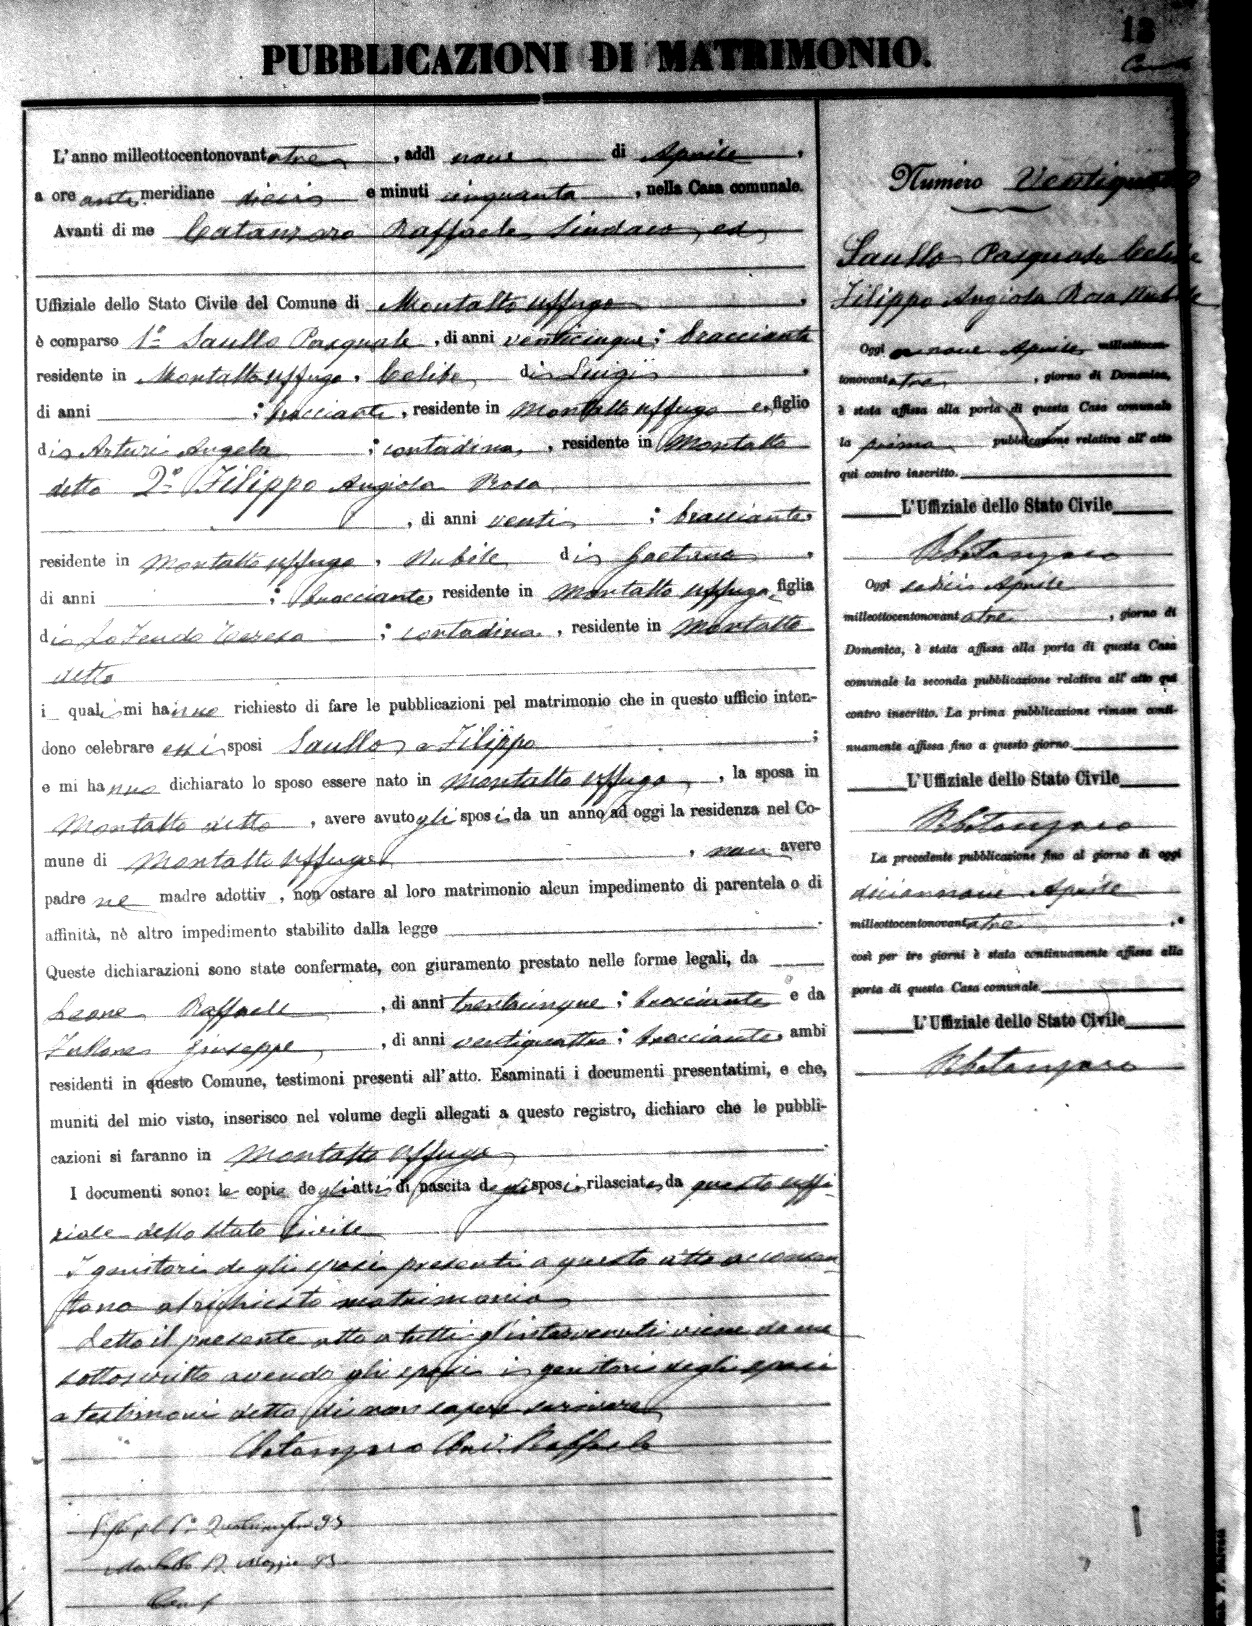 13
PUBBLICAZIONI DI MATRIMONIO.
L'anno milleottocentonovantatre, addì nove di Aprile,
a ore antimeridiane dieci e minuti cinquanta, nella Casa comunale.
Avanti di me Catanzaro Raffaele Sindaco, ed
Uffiziale dello Stato Civile del Comune di Montalto Uffugo,
è comparso 1º Saullo Pasquale, di anni venticinque; bracciante
residente in Montalto Uffugo. Celibe di Luigi,
di anni ; bracciante, residente in Montalto Uffugo e figlio
di Arturi Angela ; contadina, residente in Montalto
detto 2º Filippo Angiola Rosa
, di anni venti ; bracciante
residente in Montalto Uffugo. Nubile di Gaetano,
di anni ; bracciante, residente in Montalto Uffugo figlia
di Lo Feudo Teresa ; contadina, residente in Montalto
detto
i quali mi hanno richiesto di fare le pubblicazioni pel matrimonio che in questo ufficio inten-
dono celebrare essi sposi Saullo e Filippo ;
e mi hanno dichiarato lo sposo essere nato in Montalto Uffugo, la sposa in
Montalto detto, avere avuto gli sposi da un anno ad oggi la residenza nel Co-
mune di Montalto Uffugo, non avere
padre ne madre adottiv , non ostare al loro matrimonio alcun impedimento di parentela o di
affinità, nè altro impedimento stabilito dalla legge .
Queste dichiarazioni sono state confermate, con giuramento prestato nelle forme legali, da
Leone Raffaele, di anni trentacinque; bracciante e da
Giuseppe, di anni ventiquattro; bracciante ambi
residenti in questo Comune, testimoni presenti all'atto. Esaminati i documenti presentatimi, e che,
muniti del mio visto, inserisco nel volume degli allegati a questo registro, dichiaro che le pubbli-
cazioni si faranno in Montalto Uffugo.
I documenti sono: le copie degli atti di nascita degli sposi rilasciate da questo uffi-
ziale dello Stato Civile
I genitori degli sposi presenti a questo atto acconsen
tono al richiesto matrimonio
Letto il presente atto a tutti gl'intervenuti viene da me
sottoscritto avendo gli sposi i genitori degli sposi
e testimoni detto di non sapere scrivere
Catanzaro Raffaele
93
Maggio 93
Numero
Saullo Pasquale Celibe
Filippo Angiola Rosa Nubile
Oggi nove Aprile milleottocen-
tonovantatre, giorno di Domenica,
è stata affissa alla porta di questa Casa comunale
la prima pubblicazione relativa all'atto
qui contro inscritto.
L'Uffiziale dello Stato Civile
RCatanzaro
Oggi sedici Aprile
milleottocentonovantatre, giorno di
Domenica, è stata affissa alla porta di questa Casa
comunale la seconda pubblicazione relativa all'atto qui
contro inscritto. La prima pubblicazione rimase conti-
nuamente affissa fino a questo giorno.
L'Uffiziale dello Stato Civile
RCatanzaro
La precedente pubblicazione fino al giorno di oggi
diciannove Aprile
milleottocentonovantatre, e
così per tre giorni è stata continuamente affissa alla
porta di questa Casa comunale.
L'Uffiziale dello Stato Civile
RCatanzaro